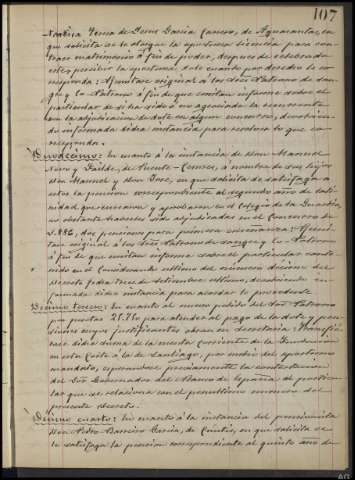 107
Josefa de Jesus Garcia Canoso, de Aguasantas, en
que solicita se le otorgue la oportuna licencia para con-
traer matrimonio á fin de poder, despues de celebrado
este, percibir la cuantia dote cuanto por derecho le co-
rresponda: Remitase original á los Sres Patronos de san-
gre y Co-Patrono á fin de que emitan informe sobre el
particular de si ha sido ó no agraciada la recurrente
con la adjudicacion de dote en algun concurso, devolvien-
do informada dicha instancia para resolver lo que co-
rresponda.
Duodécimo: En cuanto á la instancia de Don Manuel
Nuno y Failde, de Puente-Cesures, á nombre de sus hijos
Don Manuel y Don José, en que solicita se satisfaga á
estos la pension correspondiente al segundo año de lati-
nidad que cursaron y aprobaron en el Colegio de la Guardia,
no obstante haberles sido adjudicadas en el Concurso de
1.886, dos pensiones para primera enseñanza: Remi-
tase original á los Sres Patronos de sangre y Co-Patrono
á fin de que emitan informe sobre el particular conte-
nido en el Considerando último del número décimo del
decreto fecha trece de Setiembre último, devolviendo in-
formada dicha instancia para acordar lo procedente
Décimo tercero: En cuanto al nuevo pedido del Sor Patrono
por pesetas para atender al pago de la dote y pen-
siones cuyos justificantes obran en Secretaria: Transfié-
rase dicha suma de la cuenta corriente de la Fundacion
en esta Corte á la de Santiago, por medio del oportuno
mandato, esperandose previamente la contestacion
del Sor Gobernador del Banco de España de particu-
lar que se relaciona con el penúltimo número del
presente decreto.
Décimo cuarto: En cuanto á la instancia del pensionista
Don Pedro Barreiro Garcia, de Cuntis, en que solicita se
le satisfaga la pension correspondiente al quinto año de